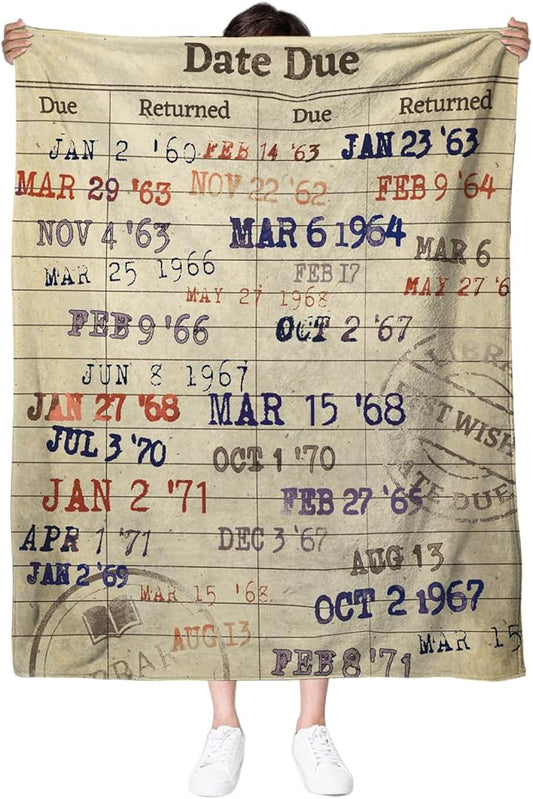 Date Due
Due Returned Due Returned
JAN 2 '60 FEB 14 '63 JAN 23 '63
MAR 29 '63 NOV 22 '62 FEB 9 '64
NOV 4 '63 MAR 6 1964 MAR 6
MAR 25 1966 FEB 17
MAY 27 1968 MAY 27 '6
FEB 9 '66 OCT 2 '67
JUN 8 1967
JAN 27 '68 MAR 15 '68
JUL 3 '70 OCT 1 '70
JAN 2 '71 FEB 27 '69
APR 1 '71 DEC 3 '67
AUG 13
JAN 2 '69 MAR 15 '68 OCT 2 1967
AUG 13 MAR 15
FEB 8 '71
LIBRA
EST WISH
ATE DUE
BRAR